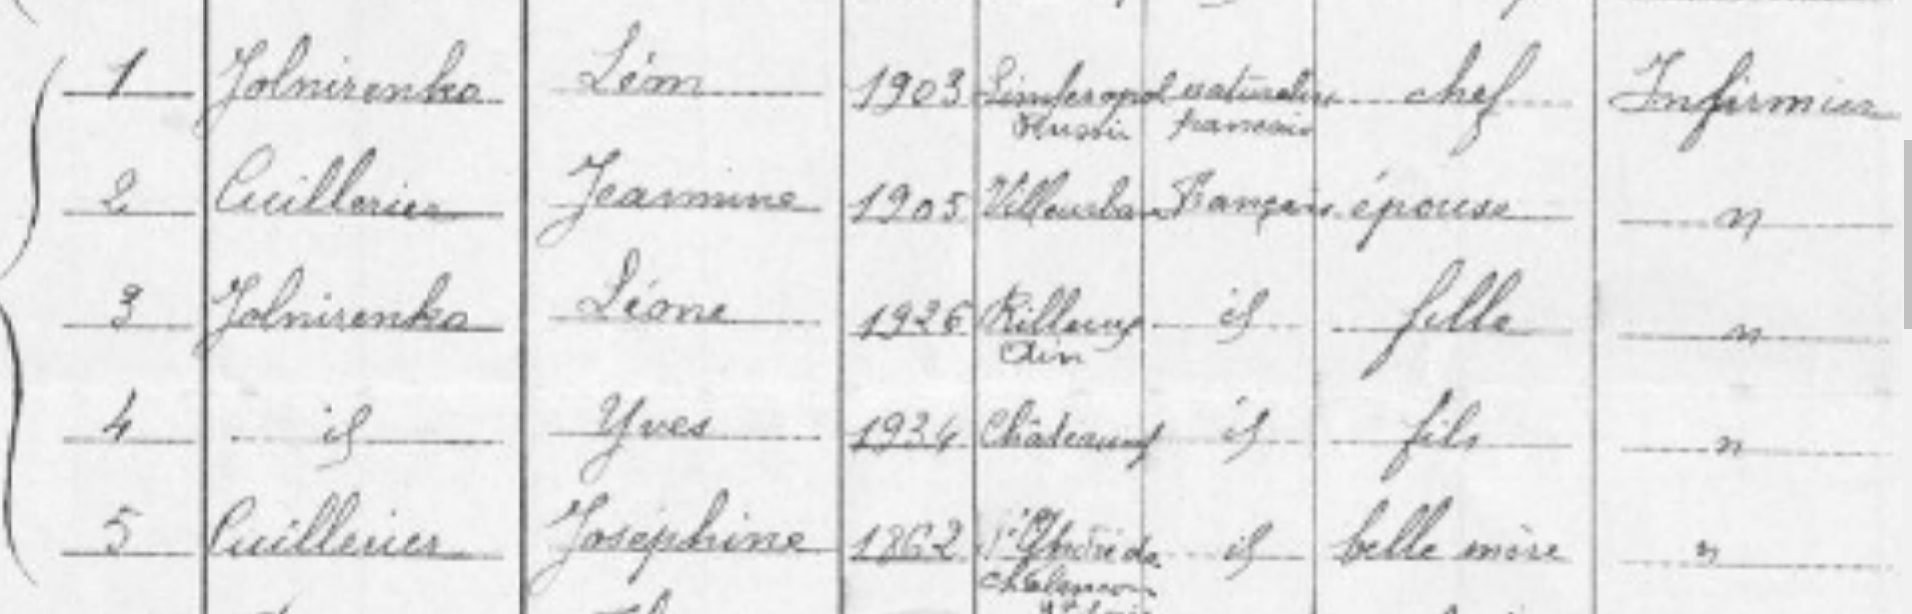 1 Jolnirenko Léon 1903 Simferopol naturalisé chef Infirmier
Russie français
2 Cuillerier Jeannine 1905 Villeurban Français épouse n
3 Jolnirenko Léone 1926 Rillieux id fille n
Ain
4 id Yves 1934 Châteauneuf id fils n
5 Cuillerier Joséphine 1862 St André de id belle mère n